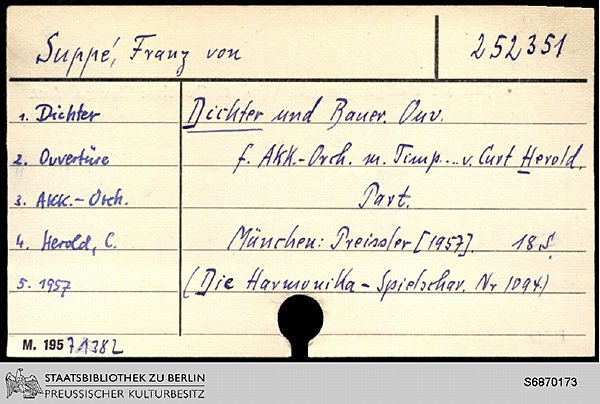 Suppé, Franz von
252351
1. Dichter
2. Ouvertüre
3. AKK.-Orch.
4. Herold, C.
5. 1957
Dichter und Bauer. Ouv.
f. AKK.-Orch. m. Timp... v. Curt Herold.
Part.
München: Preissler [1957]. 18 S.
(Die Harmonika-Spielschar. Nr 1094)
M. 1957
STAATSBIBLIOTHEK ZU BERLIN
PREUSSISCHER KULTURBESITZ
S6870173